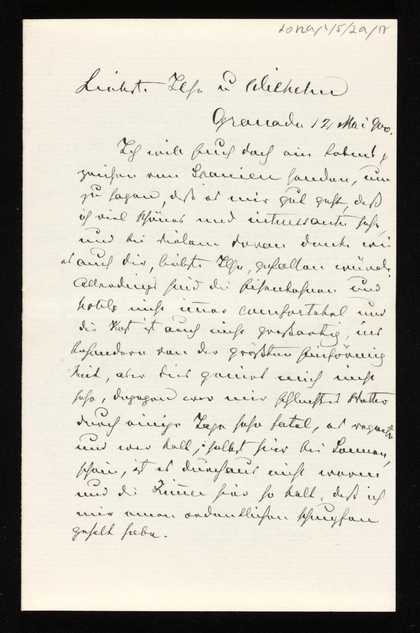 Liebste Ilse u Wilhelm
Granada 12 Mai 900.
Ich will Euch doch ein Lebens
zeichen von Spanien senden, um
zu sagen, daß es mir gut geht, daß
ich viel schönes und interessantes sehe,
und bei vielem davon denke wie
es auch dir, liebste Ilse, gefallen würde.
Allerdings sind die Eisenbahnen und
Hotels nicht immer comfortabel und
die Kost ist auch nicht großartig, ins
besondere von der größten Einförmig
keit, aber dies geniert mich nicht
sehr, dagegen war mir schlechtes Wetter
durch einige Tage sehr fatal, es regnete
und war kalt, selbst hier bei Sonnen
schein, ist es durchaus nicht warm
und die Zimmer hier so kalt, daß ich
mir einen ordentlichen Schnupfen
geholt habe.